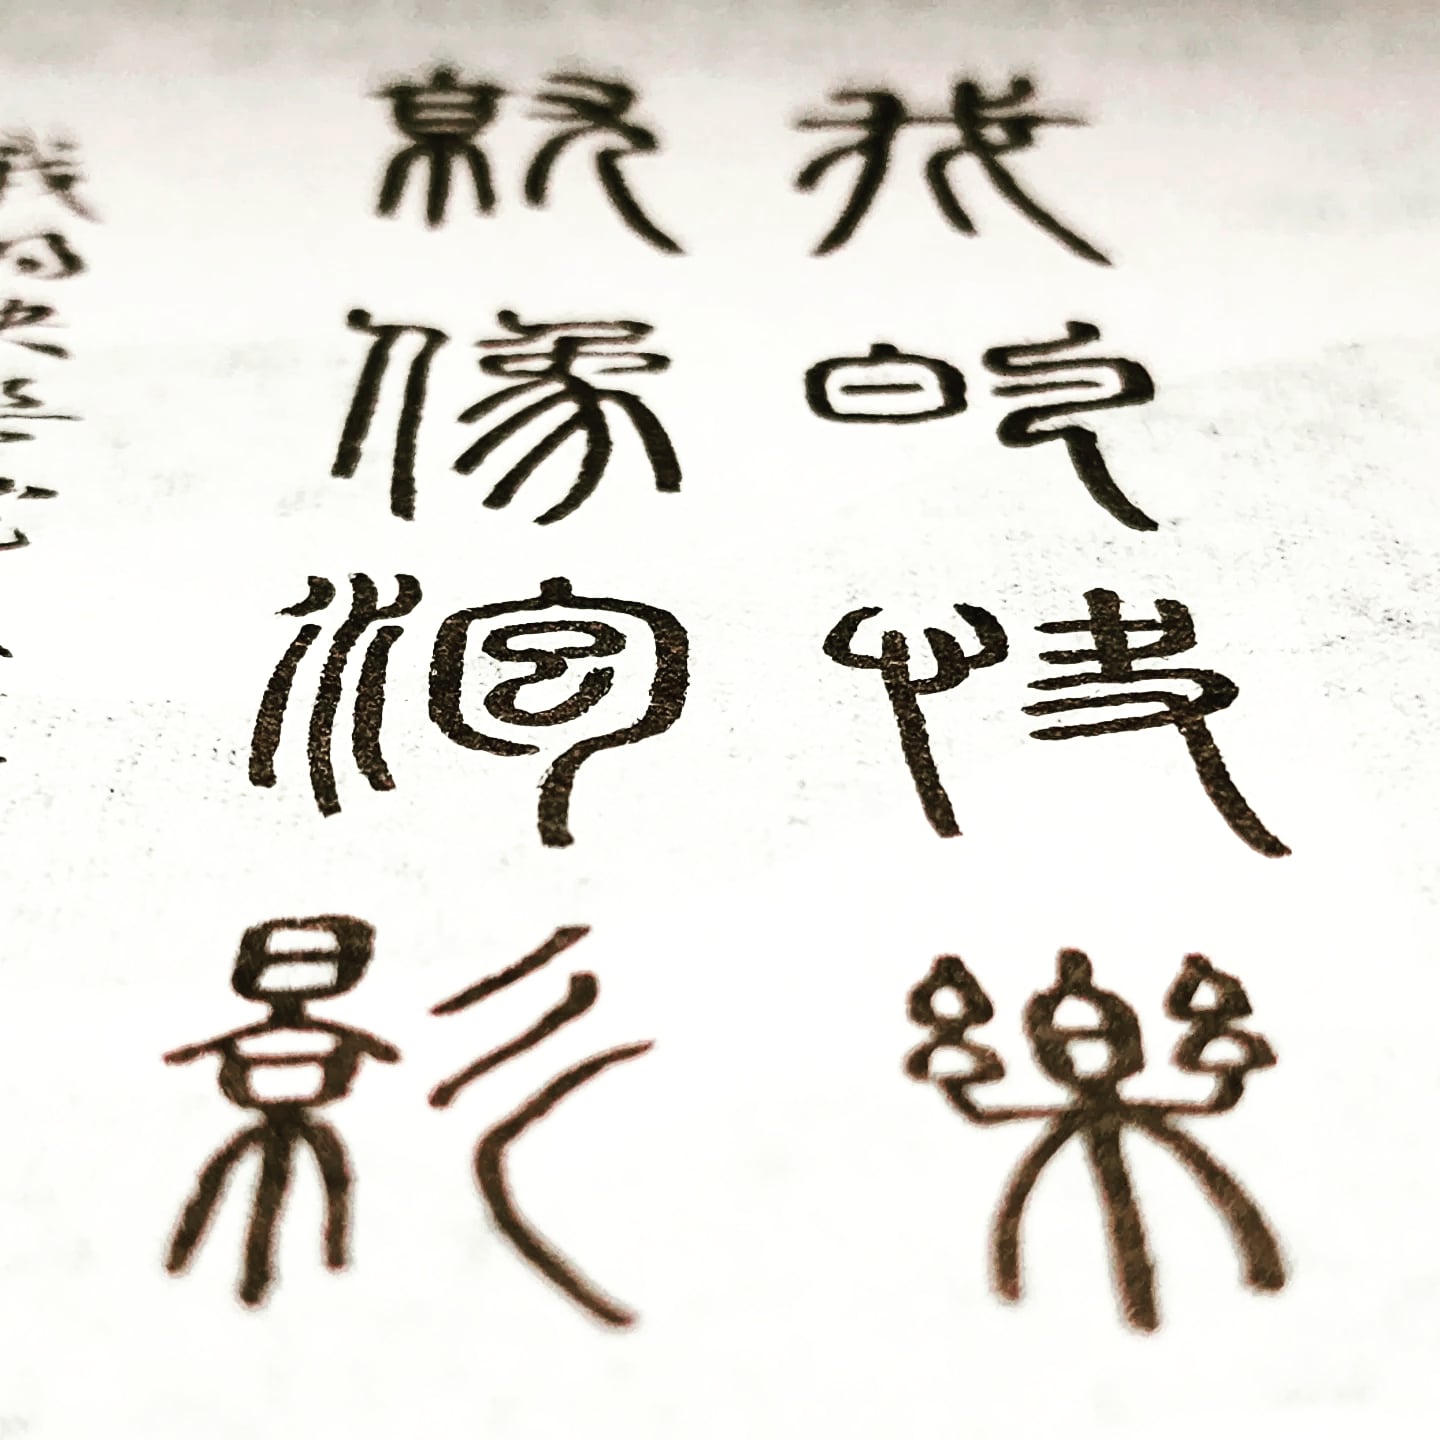 我的快樂
就像泡影